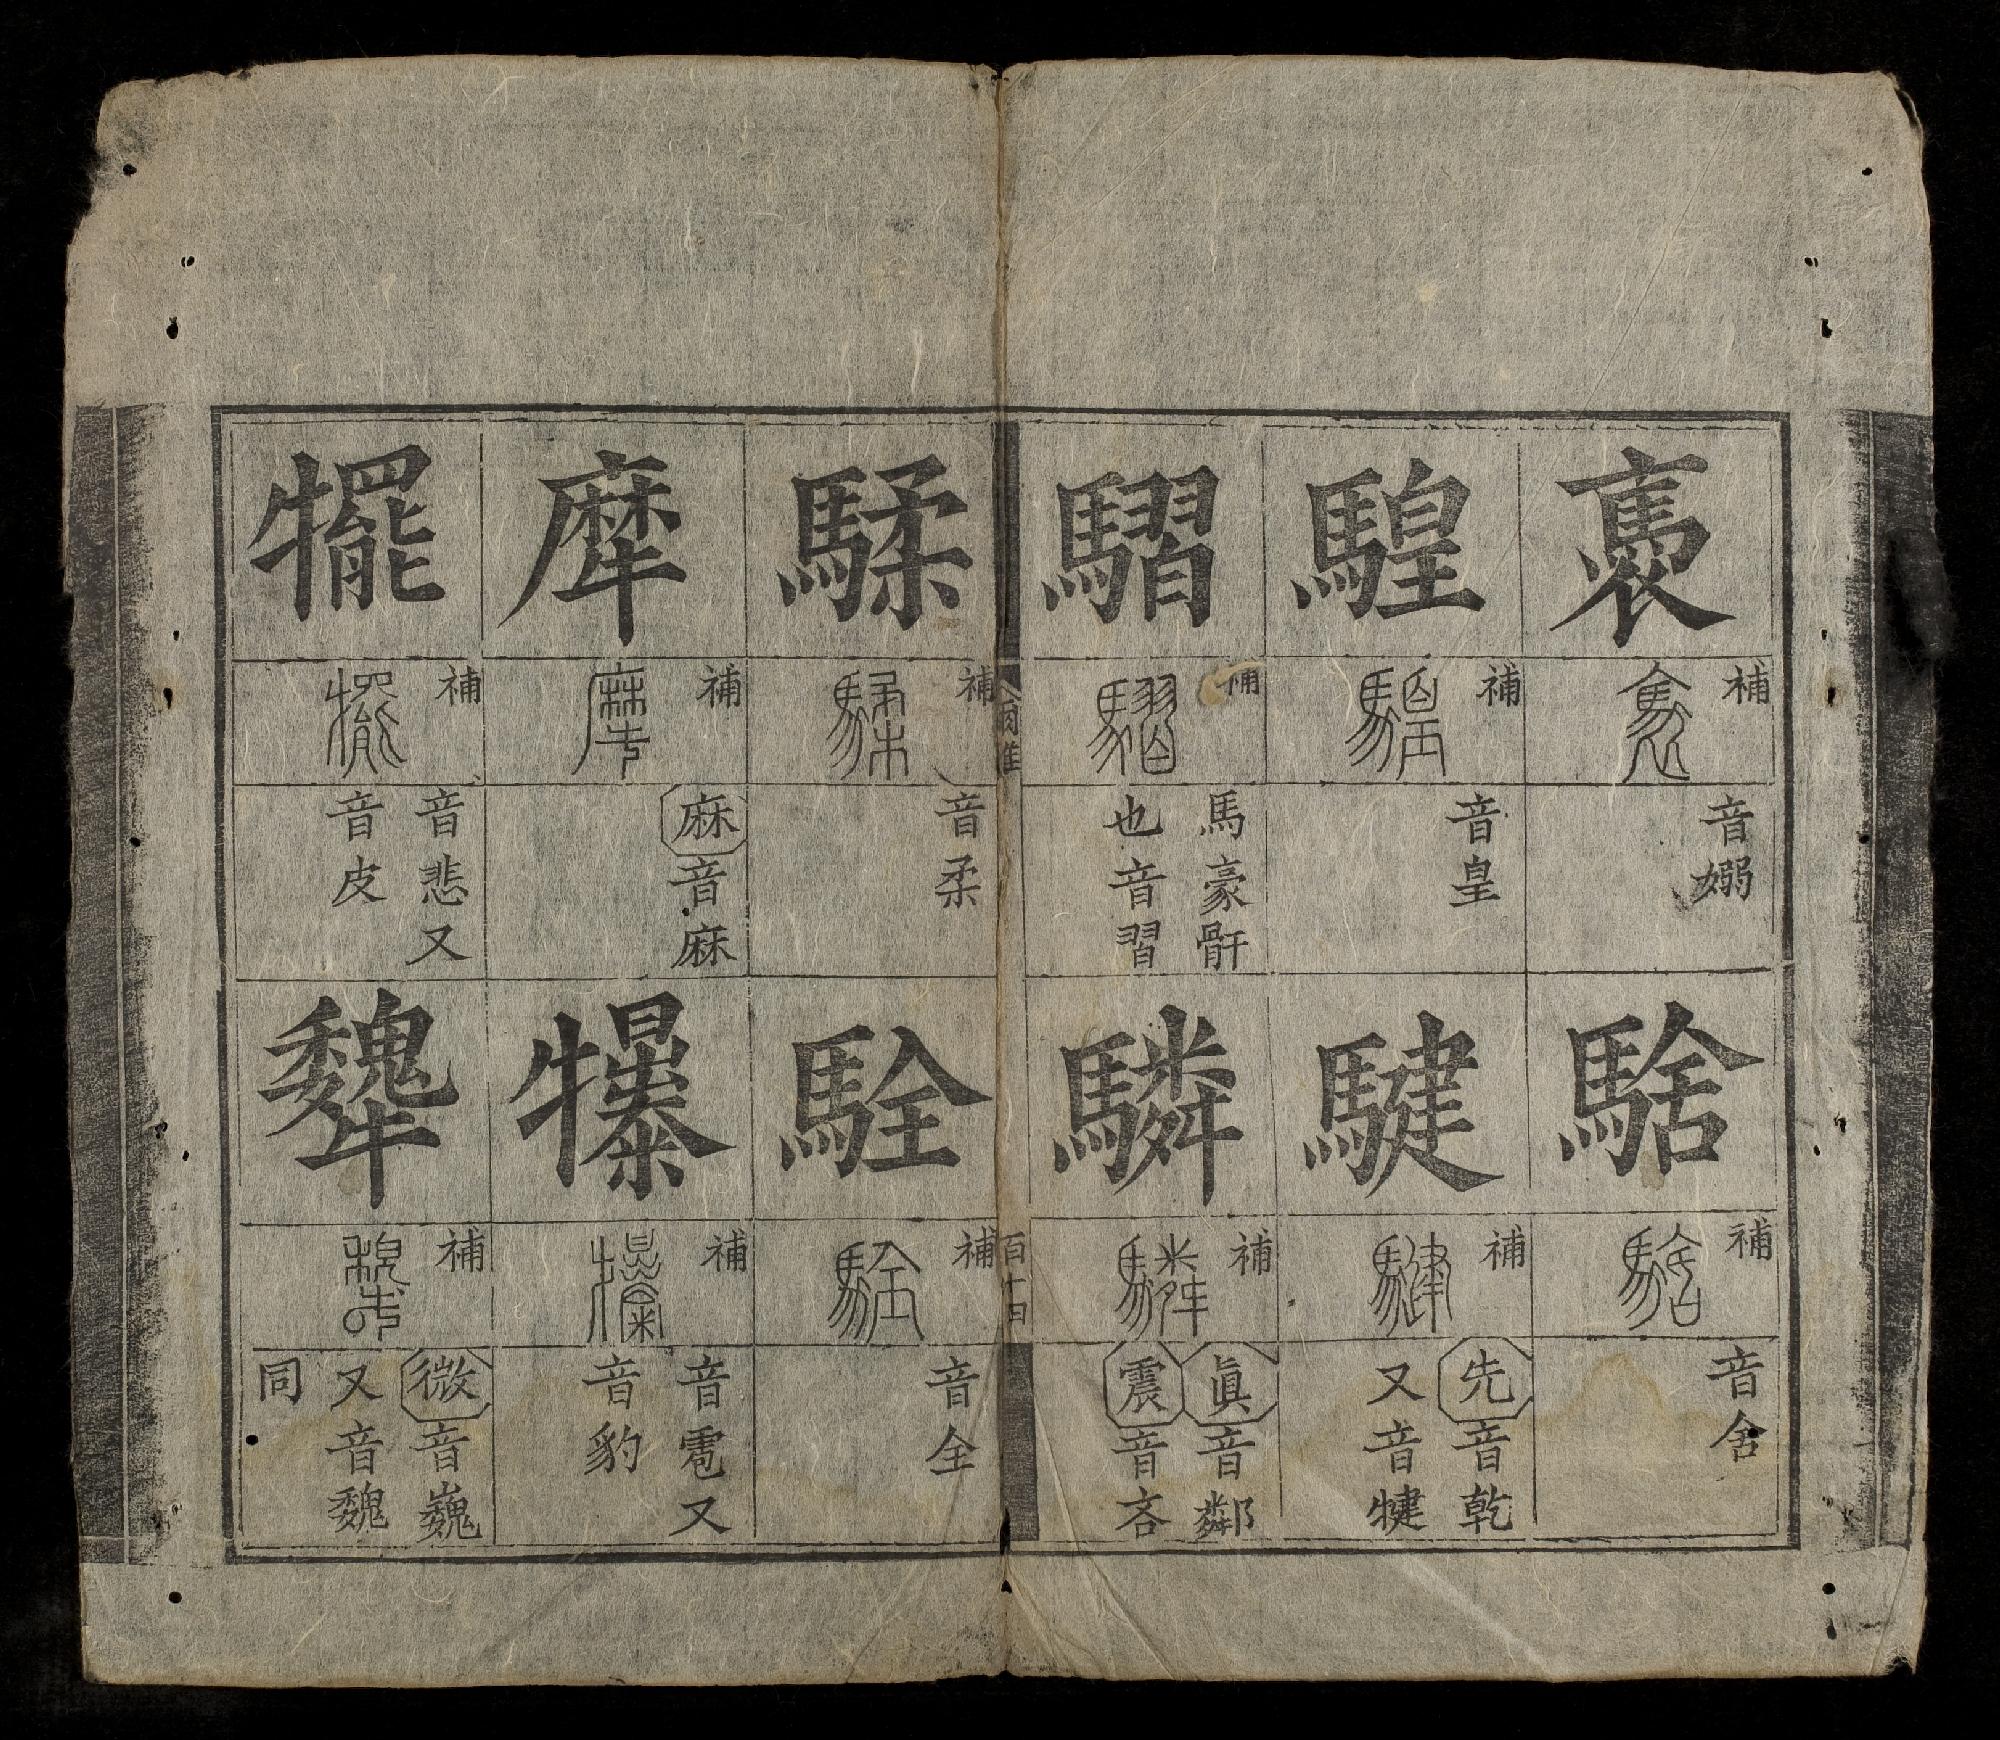 褭
補
褭
音嫋
騇
補
騇
音舍
騜
補
騜
音皇
騝
補
騝
先音乾
又音犍
騽
補
騽
馬豪骭
也音習
驎
補
驎
眞音鄰
震音吝
爾雅
騥
補
騥
音柔
駩
補
駩
音全
犘
補
犘
麻音麻
犦
補
犦
音雹又
音豹
犤
補
犤
音悲又
音皮
犩
補
犩
微音巍
又音魏
同